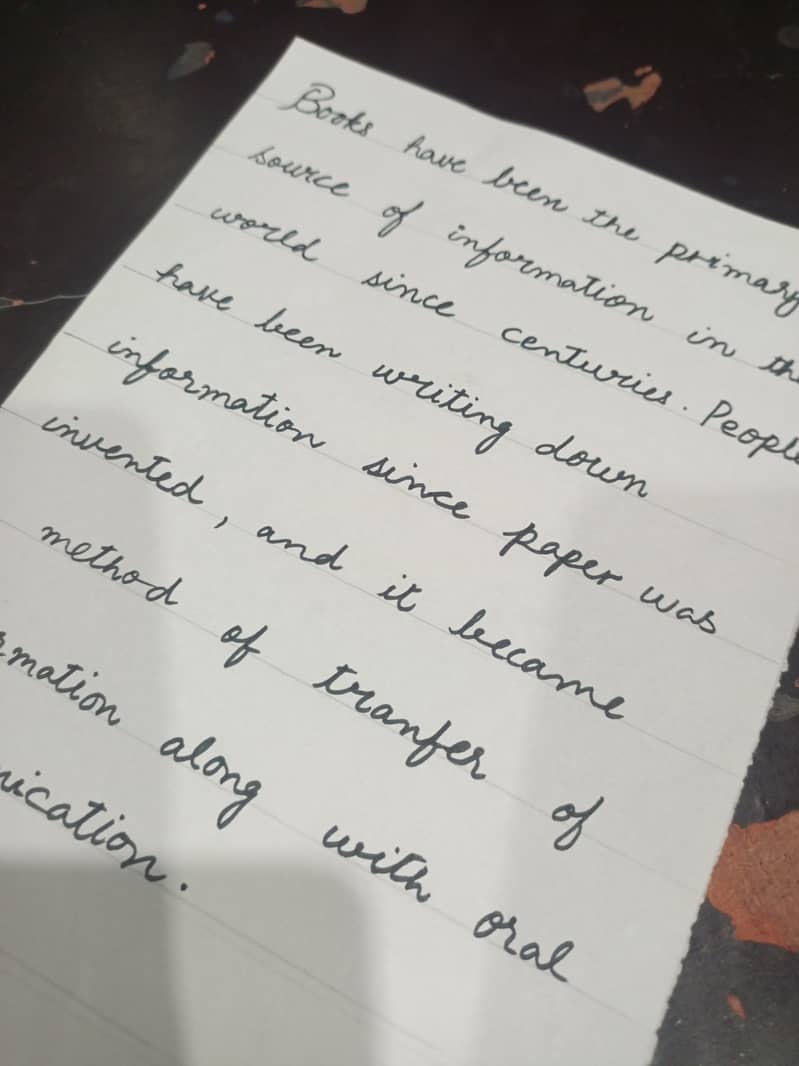 Books have been the primary
source of information in the
world since centuries. People
have been writing down
information since paper was
invented, and it became
method of tranfer of
rmation along with oral
nication.